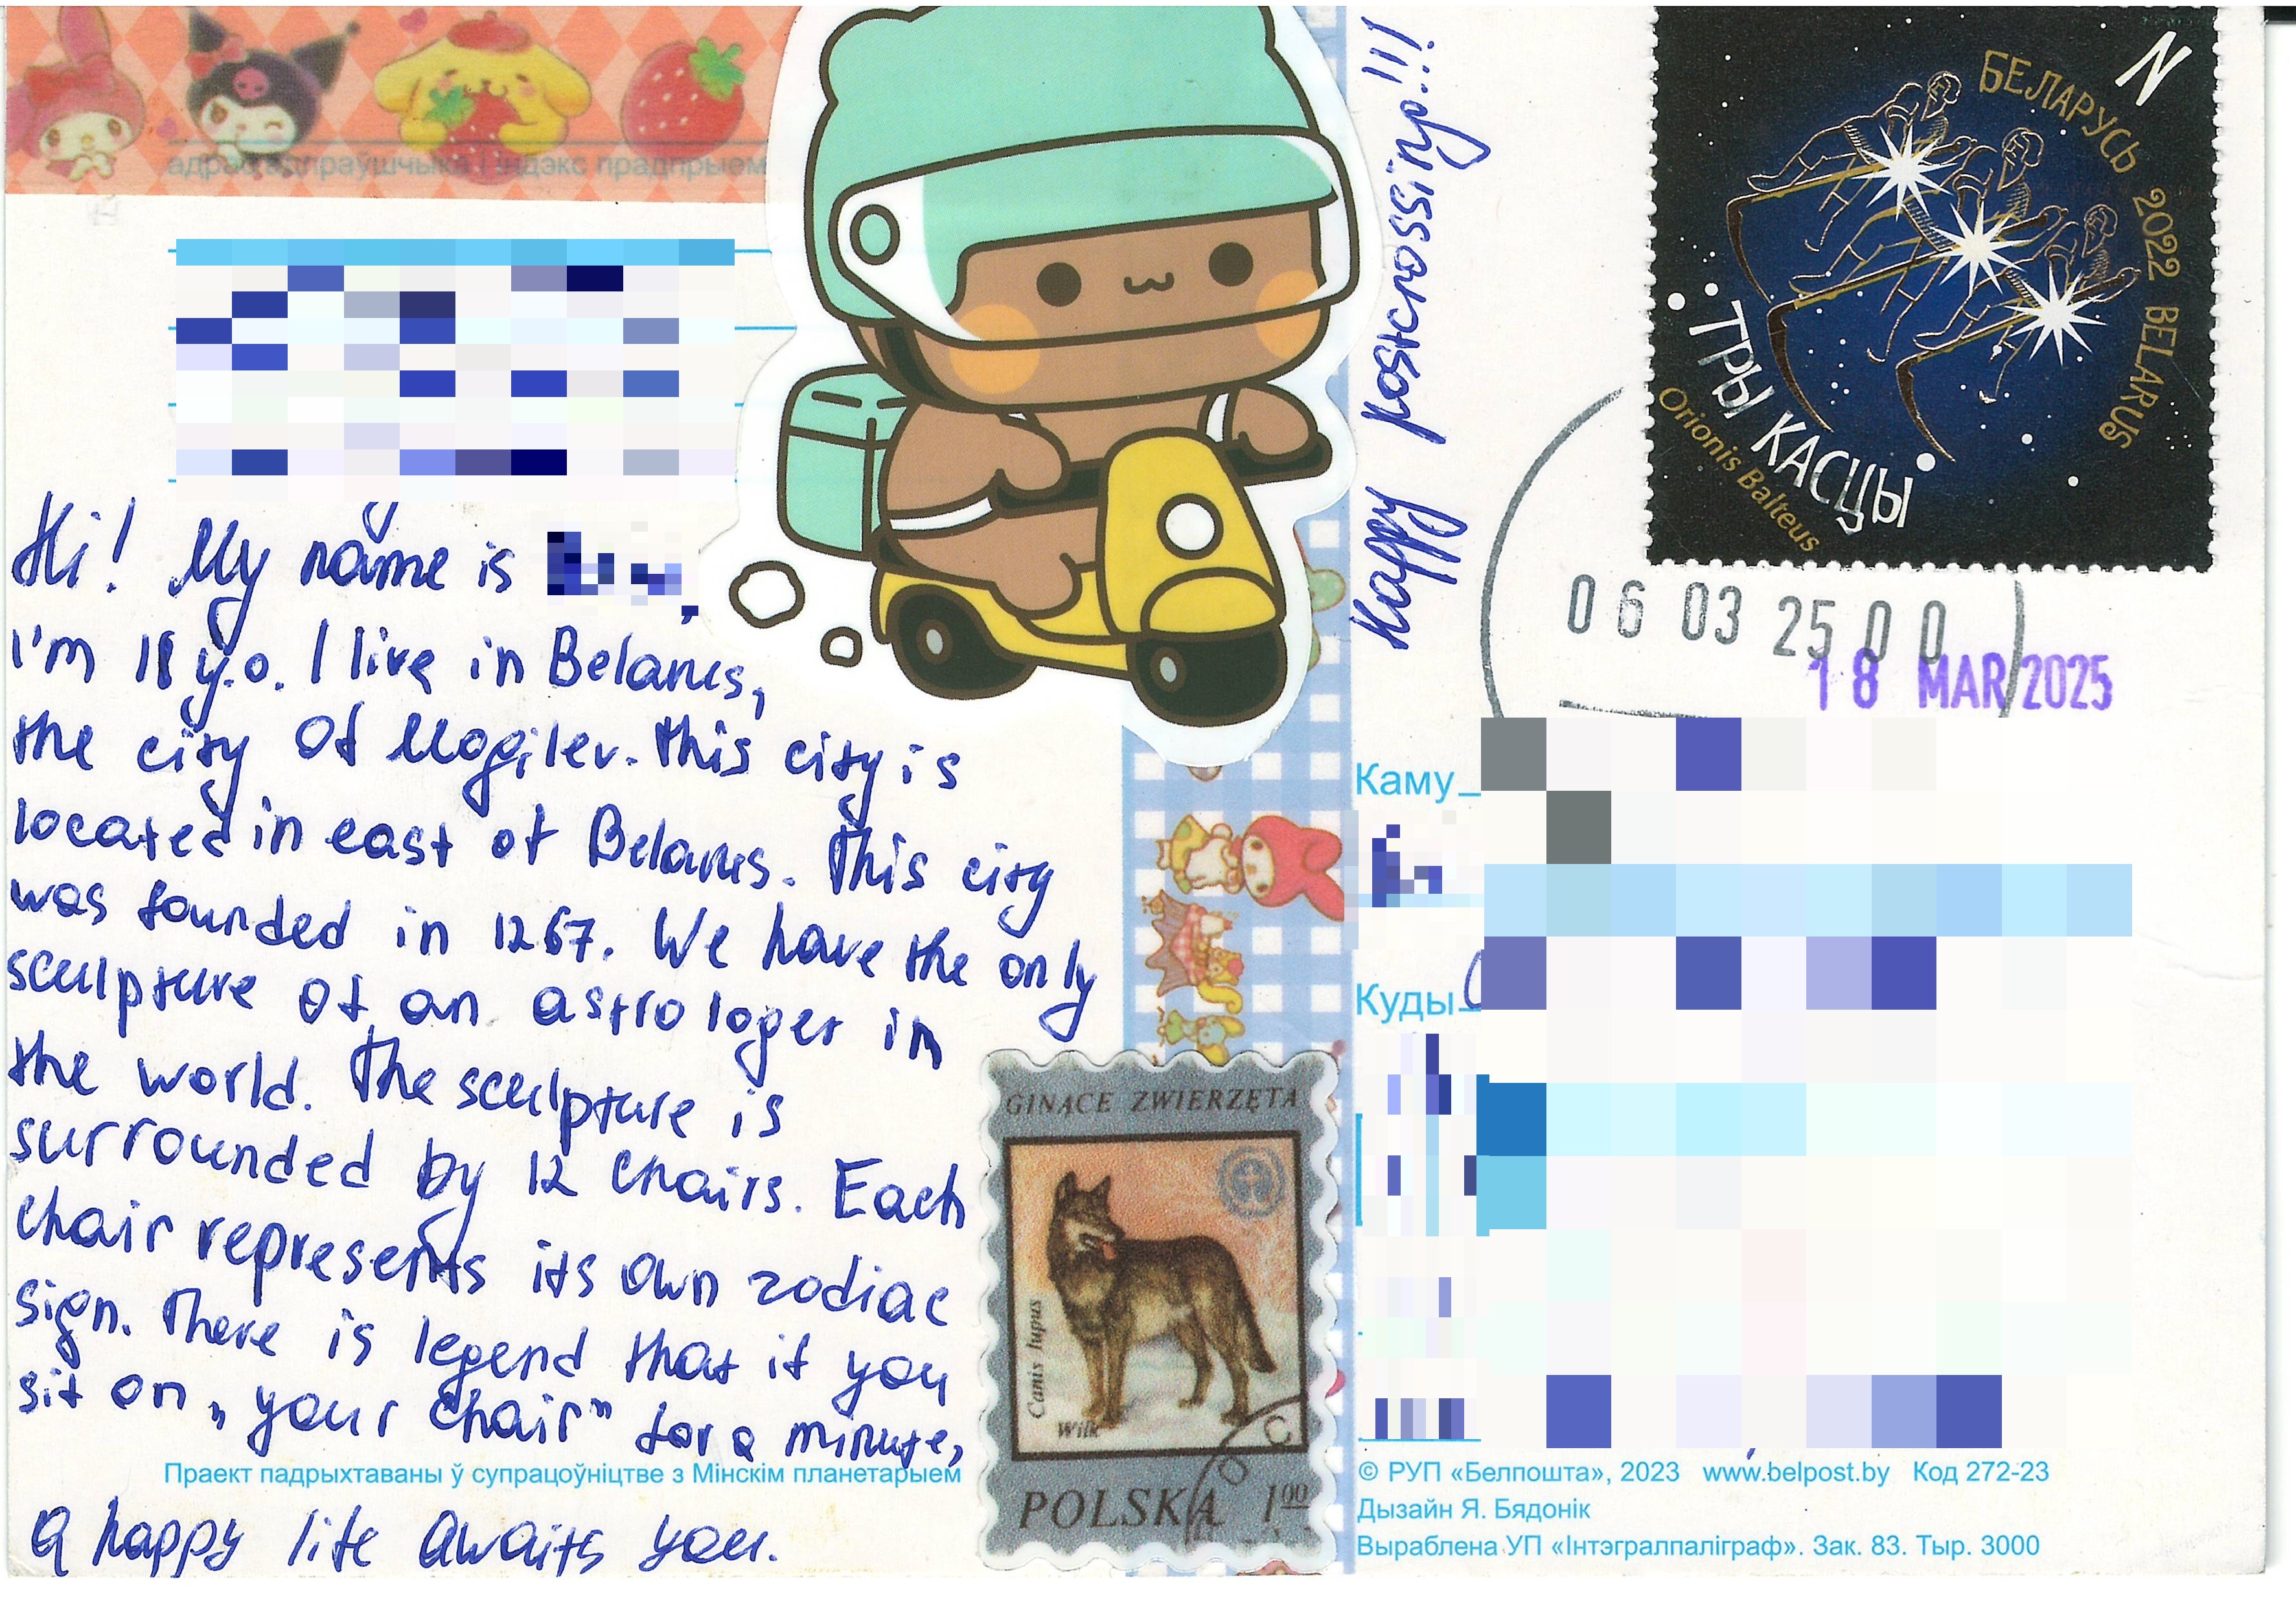 адрас адпраўшчыка і індэкс прадпрыем
Hi! My name is
I'm 18 y.o. I live in Belarus,
the city of Mogilev. This city is
located in east of Belarus. This city
was founded in 1267. We have the only
sculpture of an astrologer in
the world. The sculpture is
surrounded by 12 chairs. Each
chair represents its own zodiac
sign. There is legend that if you
sit on „your chair" for a minute,
Праект падрыхтаваны ў супрацоўніцтве з Мінскім планетарыем
a happy life awaits you.
GINĄCE ZWIERZĘTA
Canis lupus
Wilk
POLSKA 1 00
Happy postcrossing!!!
N
БЕЛАРУСЬ 2022 BELARUS
ТРЫ КАСЦЫ
Orionis Balteus
06 03 25 00
18 MAR 2025
Каму
Куды
© РУП «Белпошта», 2023 www.belpost.by Код 272-23
Дызайн Я. Бядонік
Выраблена УП «Інтэгралпаліграф». Зак. 83. Тыр. 3000